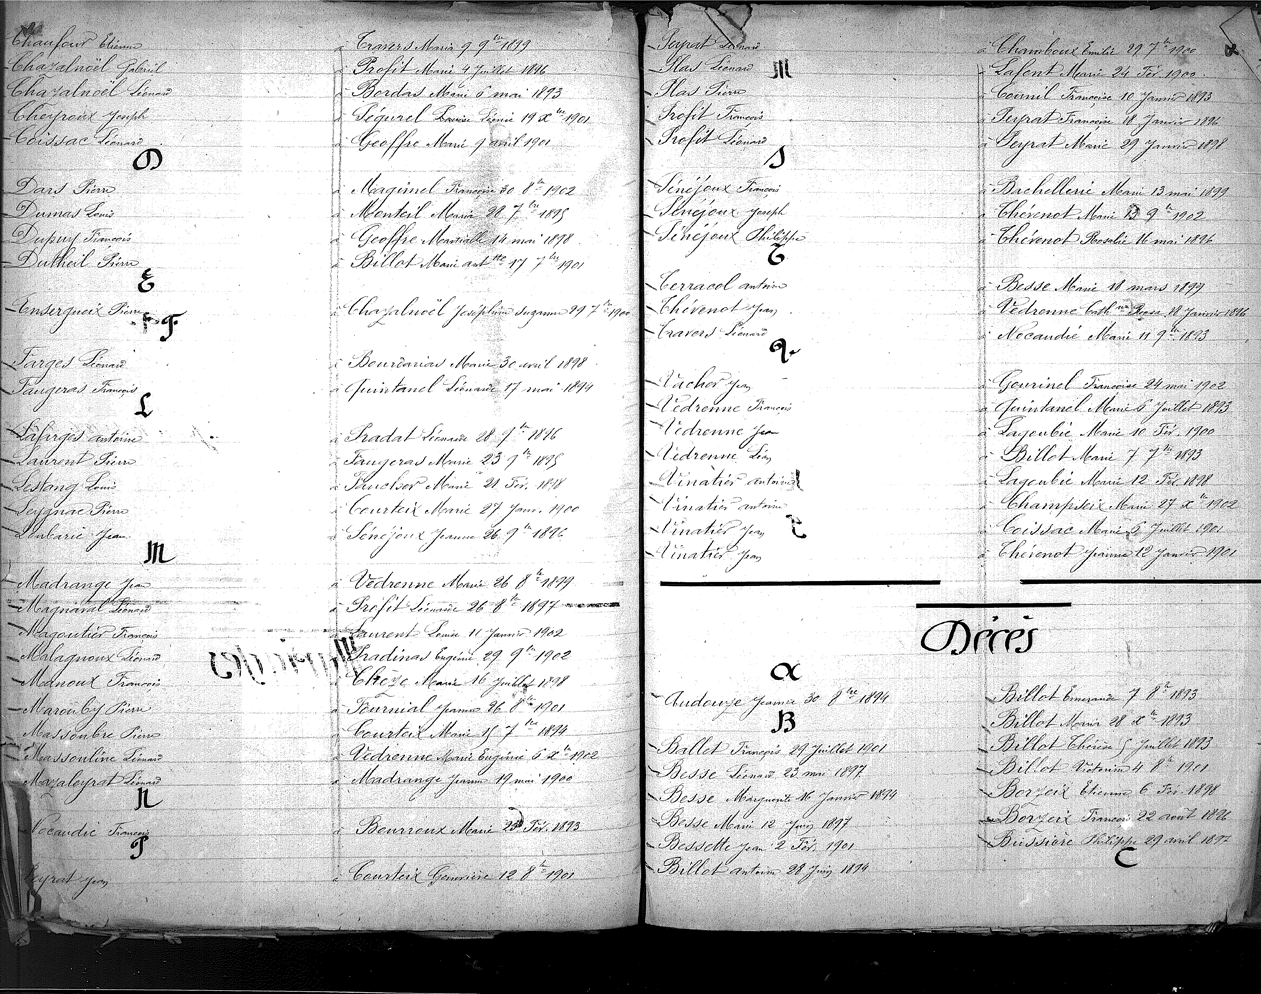 Chaufour Etienne à Travers Maria 9 9bre 1899
Chazalnoël Gabriel à Profit Marie 4 Juillet 1896
Chazalnoël Léonard à Bordas Marie 6 mai 1893
Cheyroux Joseph à Ségurel Louise Léonie 19 Xbre 1901
Coissac Léonard à Geoffre Marie 9 avril 1901
D
Dars Pierre à Magimel Françoise 30 8bre 1902
Dumas Louis à Monteil Maria 28 7bre 1895
Dupuy François à Geoffre Martialle 14 mai 1898
Dutheil Pierre à Billot Marie antnte 17 7bre 1901
E
Ensergueix Pierre à Chazalnoël Joséphine Suzanne 29 7bre 1900
F
Farges Léonard à Bourdarias Marie 30 avril 1898
Faugeras François à Quintanel Léonarde 17 mai 1894
L
Lafarges antoine à Pradat Léonarde 28 9bre 1896
Laurent Pierre à Faugeras Marie 23 9bre 1895
Lestang Louis à Faucher Marie 21 Fév. 1898
Leygnac Pierre à Courteix Marie 27 Janv. 1900
Loubarie Jean à Sénéjoux Jeanne 26 9bre 1896
M
Madrange Jean à Védrenne Marie 26 8bre 1899
Magnaval Léonard à Profit Léonarde 26 8bre 1897
Magoutier François à Laurent Louise 11 Janvier 1902
Malagnoux Léonard à Pradinas Eugénie 29 9bre 1902
Manoux François à Chèze Marie 16 Juillet 1898
Marouby Pierre à Fournial Jeanne 26 8bre 1901
Massoubre Pierre à Courteix Marie 15 7bre 1894
Massouline Léonard à Védrenne Marie Eugénie 6 Xbre 1902
Mazaleyrat Léonard à Madrange Jeanne 19 mai 1900
N
Nocaudie François à Bourroux Marie 25 Fév. 1893
P
Peyrat Jean à Courteix Geneviève 12 8bre 1901
Peyrat Léonard à Chamboux Emilie 29 7bre 1900
Plas Léonard à Lafont Marie 24 Fév. 1900
Plas Pierre à Cournil Françoise 10 Janvier 1893
Profit François à Peyrat Françoise 18 Janvier 1896
Profit Léonard à Peyrat Marie 29 Janvier 1898
S
Sénéjoux François à Bachellerie Marie 13 mai 1899
Sénéjoux Joseph à Thévenot Marie 13 9bre 1902
Sénéjoux Philippe à Thévenot Rosalie 16 mai 1896
T
Terracol antoine à Besse Marie 18 mars 1899
Thévenot Jean à Védrenne Cathine Rose 18 Janvier 1896
Travers Léonard à Nocaudie Marie 11 9bre 1893
V
Vacher Jean à Gourinel Françoise 24 mai 1902
Védrenne François à Quintanel Marie 6 Juillet 1893
Védrenne Jean à Lagoubie Marie 10 Fév. 1900
Védrenne Léon à Billot Marie 7 7bre 1893
Vinatier antoine à Lagoubie Marie 12 Fév. 1898
Vinatier antoine à Champseix Marie 27 Xbre 1902
Vinatier Jean à Coissac Marie 6 Juillet 1901
Vinatier Jean à Thévenot Jeanne 12 Janvier 1901
Décès
A
Audouze Jeanne 30 8bre 1894
B
Ballet François 29 Juillet 1901
Besse Léonard 23 mai 1897
Besse Marguerite 16 Janvier 1894
Besse Marie 12 Juin 1897
Bessette Jean 2 Fév. 1901
Billot antoine 28 Juin 1894
Billot Emerande 7 8bre 1893
Billot Maria 28 Xbre 1893
Billot Thérèse 5 Juillet 1893
Billot Victorine 4 8bre 1901
Borzeix Etienne 6 Fév. 1898
Borzeix François 22 aout 1896
Bussière Philippe 29 avril 1897
C